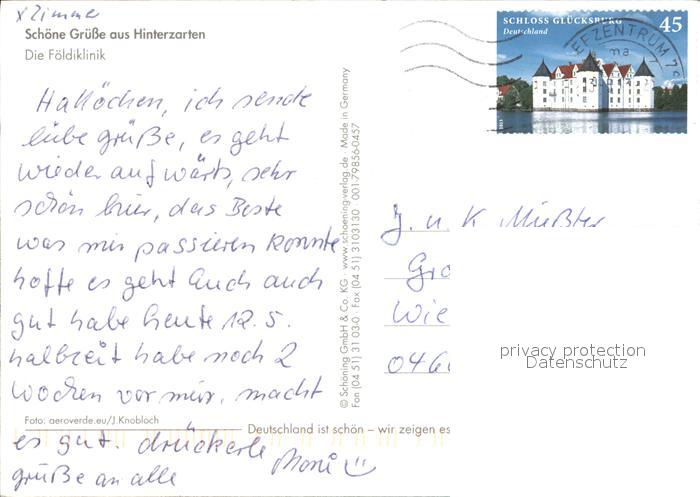 x Zimmer
Schöne Grüße aus Hinterzarten
Die Földiklinik
Hallöchen, ich sende
liebe grüße, es geht
wieder aufwärts, sehr
schön hier, das Beste
was mir passieren konnte
hoffe es geht Euch auch
gut habe heute 12.5.
halbzeit habe noch 2
Wochen vor mir. macht
es gut. drückerle
grüße an alle Moni
Foto: aeroverde.eu/J.Knobloch
Deutschland ist schön – wir zeigen es
© Schöning GmbH & Co. KG · www.schoening-verlag.de · Made in Germany
Fon (04 51) 31 03-0 · Fax (04 51) 3103130 · 001-79856-0457
SCHLOSS GLÜCKSBURG 45
Deutschland
2013
EFZENTRUM 79
J. u. K Müßter
Gro
Wie
046
privacy protection
Datenschutz